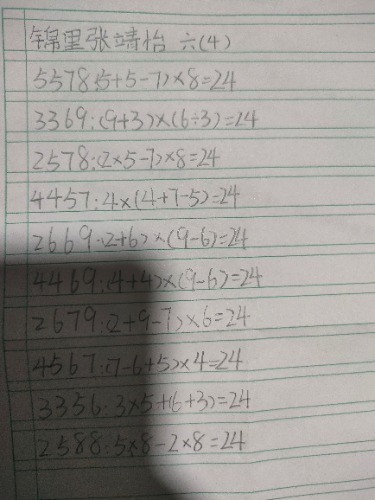 锦里张靖怡 六(4)
5578:(5+5-7)×8=24
3369:(9+3)×(6÷3)=24
2578:(2×5-7)×8=24
4457:4×(4+7-5)=24
2669:(2+6)×(9-6)=24
4469:(4+4)×(9-6)=24
2679:(2+9-7)×6=24
4567:(7-6+5)×4=24
3356:3×5+(6+3)=24
2588:5×8-2×8=24